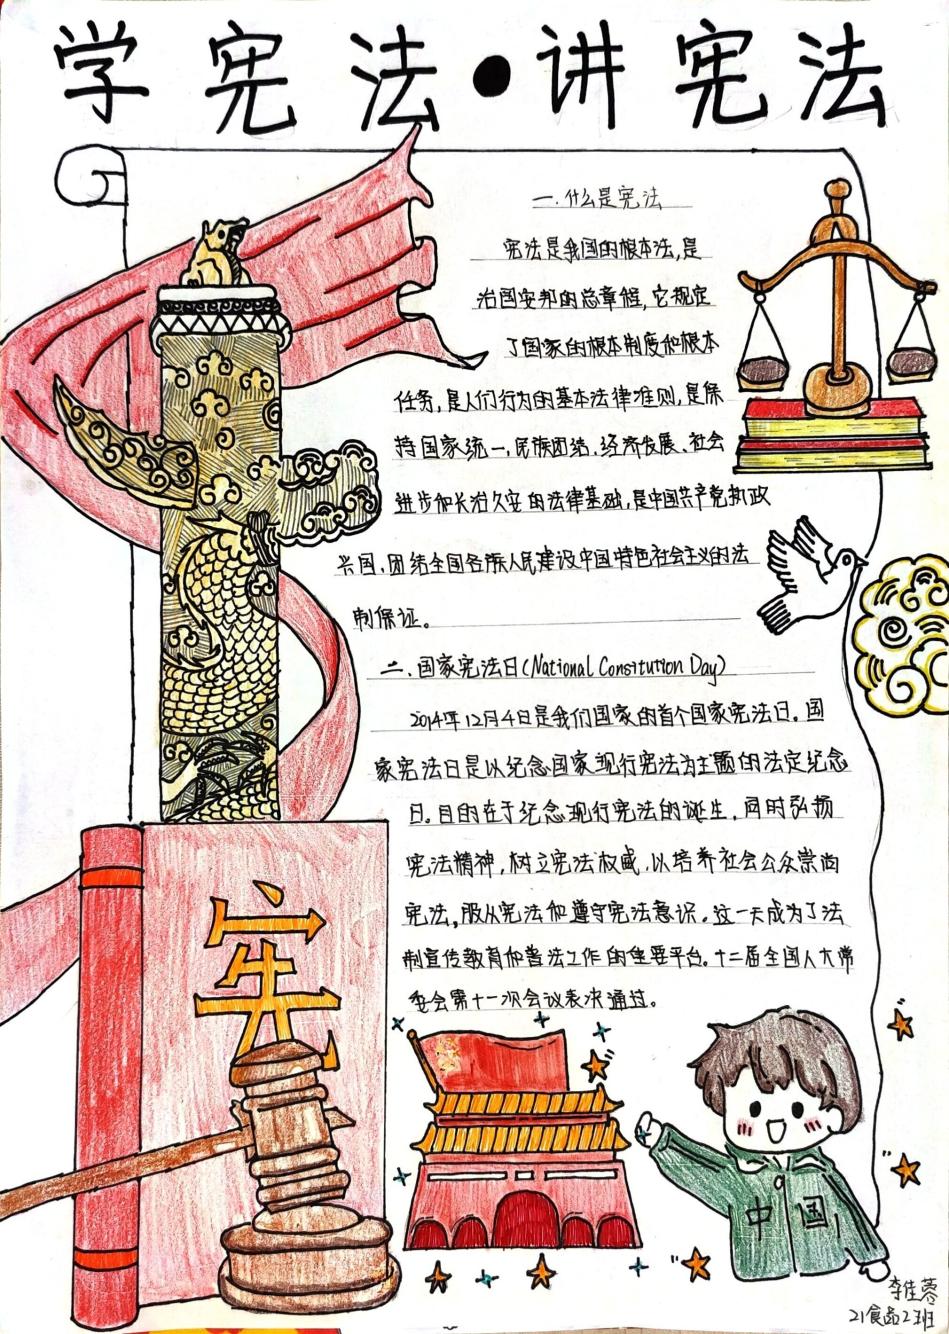 学宪法·讲宪法
一.什么是宪法
宪法是我国的根本法,是
治国安邦的总章程,它规定
了国家的根本制度和根本
任务,是人们行为的基本法律准则,是保
持国家统一,民族团结、经济发展、社会
进步和长治久安的法律基础,是中国共产党执政
兴国、团结全国各族人民建设中国特色社会主义的法
制保证。
二、国家宪法日(National Consiturion Day)
2014年12月4日是我们国家的首个国家宪法日。国
家宪法日是以纪念国家现行宪法为主题的法定纪念
日。目的在于纪念现行宪法的诞生,同时弘扬
宪法精神,树立宪法权威,以培养社会公众崇尚
宪法,服从宪法和遵守宪法意识。这一天成为了法
制宣传教育和普法工作的重要平台。十二届全国人大常
委会第十一次会议表决通过。
宪
中国
李佳蓉
21食品2班